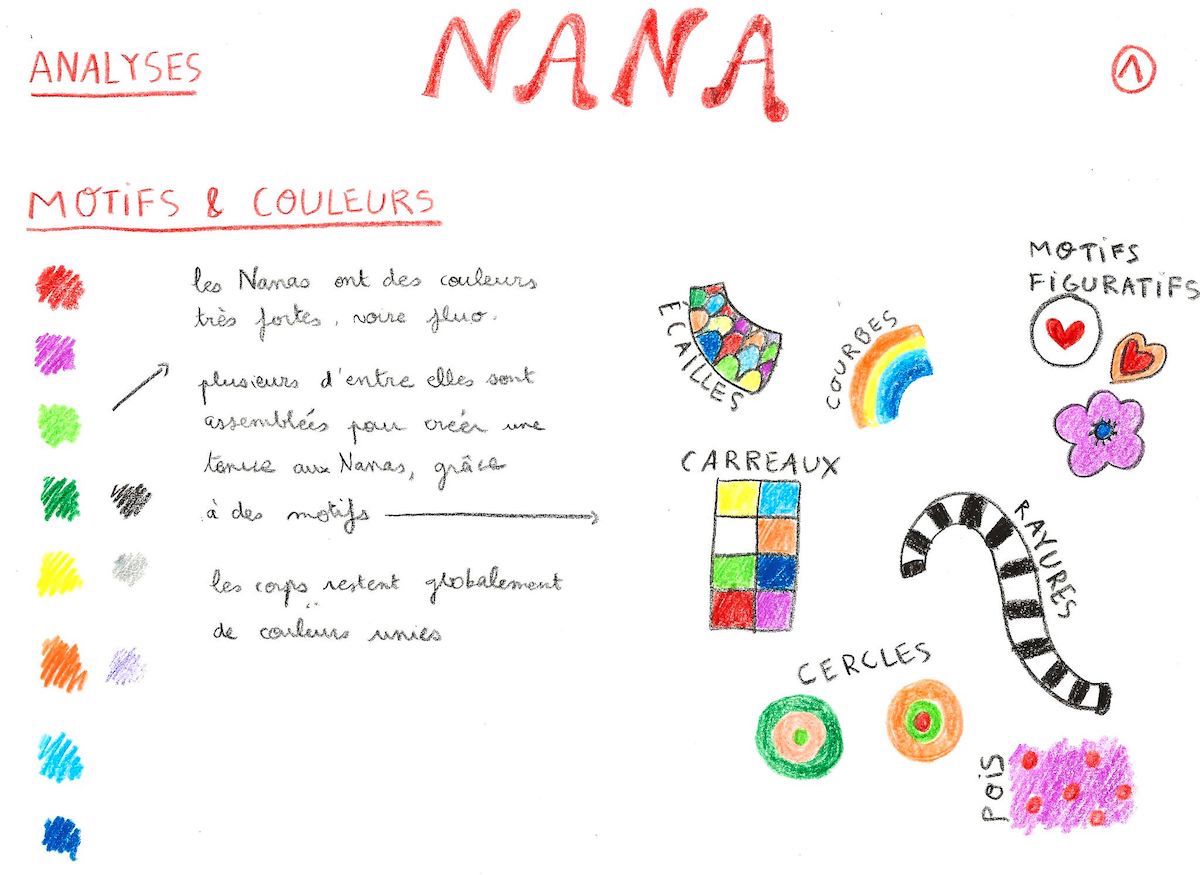 ANALYSES
NANA
1
MOTIFS & COULEURS
les Nanas ont des couleurs
très fortes, voire fluo.
plusieurs d'entre elles sont
assemblées pour créer une
tenue aux Nanas, grâce
à des motifs
les corps restent globalement
de couleurs unies
ÉCAILLES
COURBES
MOTIFS
FIGURATIFS
CARREAUX
RAYURES
CERCLES
POIS